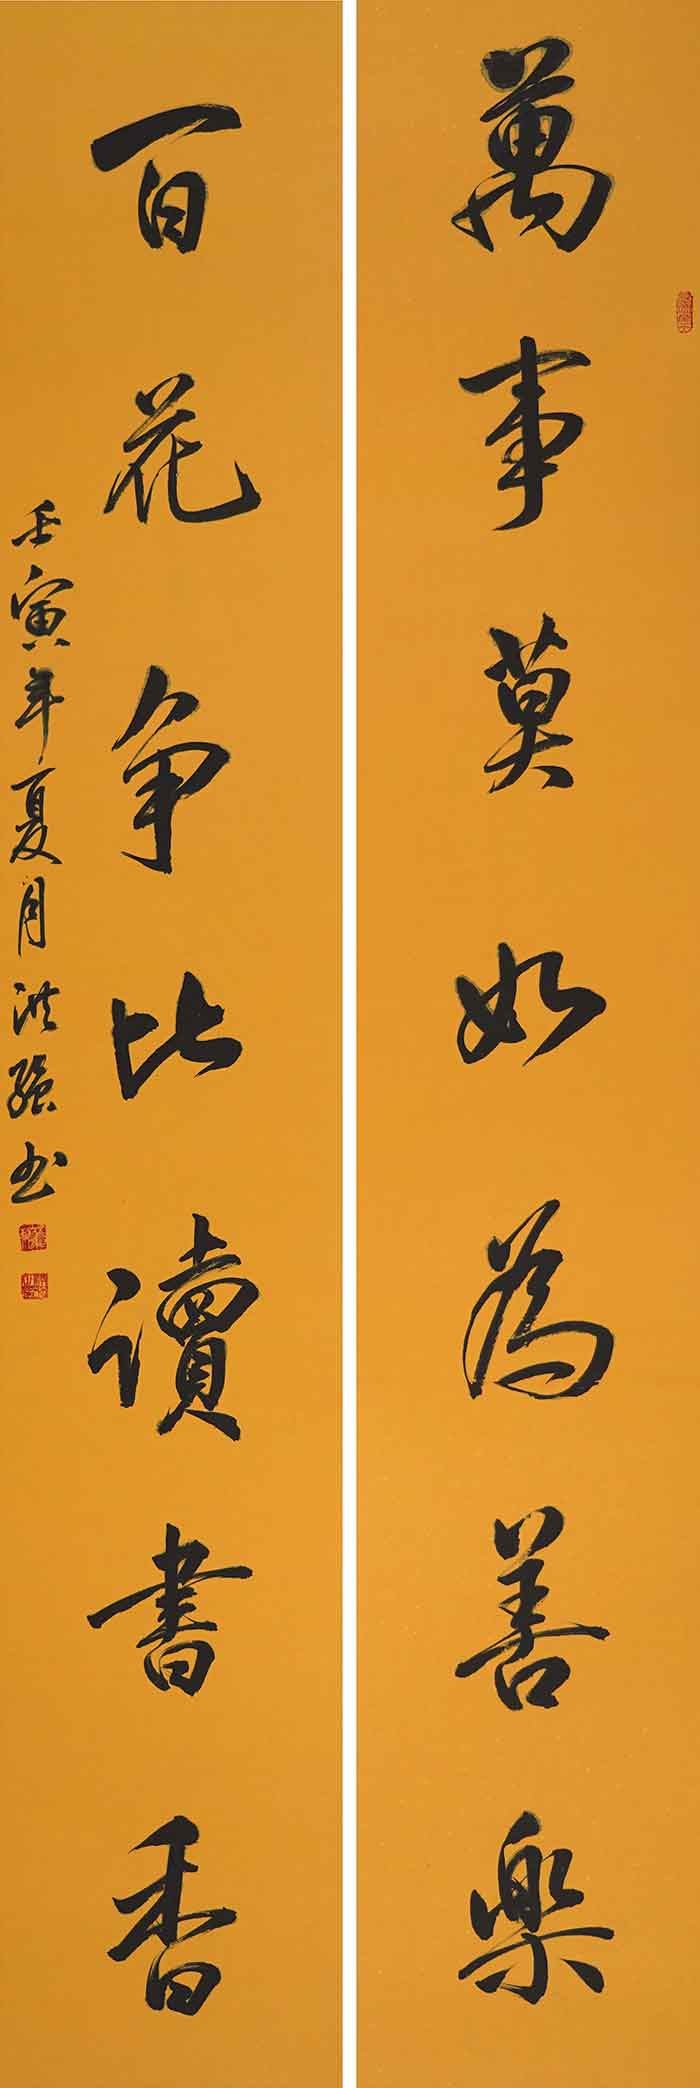 萬事莫如為善樂
百花争比讀書香
壬寅年夏月洪強书